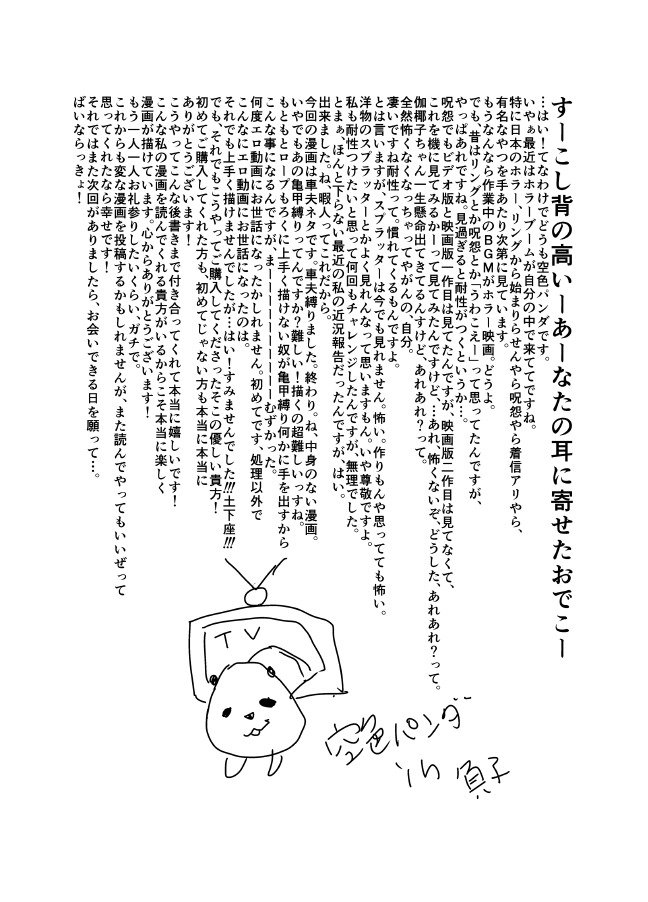 すーこし背の高いーあーなたの耳に寄せたおでこー
…はい！てなわけでどうも空色パンダです。
いやぁ最近はホラーブームが自分の中で来ててですね。
特に日本のホラー、リングから始まりせんやら呪怨やら着信アリやら、
有名なやつを手あたり次第に見ています。
もうなんなら作業中のＢＧＭがホラー映画。どうよ。
でも、昔はリングとか呪怨とか「うわこえー」って思ってたんですが、
やっぱあれですね。見過ぎると耐性がつくというか…。
呪怨でもビデオ版と映画版一作目は見てたんですが、映画版二作目は見てなくて、
これを機に見てみるかーって見てみたんですけど、…あれ、怖くないぞ、どうした、あれあれ？って。
伽椰子ちゃん一生懸命出てきてるんすけど、あれあれ？って。
全然怖くなくなっちゃってやがんの自分。
凄いですね耐性って。慣れてくるもんですよ。
とは言いますが、スプラッターは今でも見れません。怖い。作りもんや思ってても怖い。
洋物のスプラッターとかよく見れんなって思いますもん。いや尊敬ですよ。
私も耐性つけたいと思って何回もチャレンジしたんですが、無理でした。
とまぁ、ほんと下らない最近の私の近況報告だったんですが、はい。
出来ました。ね、暇人ってこれだから。
今回の漫画は車夫ネタです。車夫縛りました。終わり。ね、中身のない漫画。
いやでもあの亀甲縛りってんですか？難しい！描くの超難しいっすね。
もともとロープもろくに上手く描けない奴が亀甲縛り何かに手を出すから
こんな事になるんですが、まーーーーーーーーーむずかった。
何度エロ動画にお世話になったかしれません。初めてです、処理以外で
こんなにエロ動画にお世話になったのは。
それでも上手く描けませんでしたが…はい！すみませんでした!!!土下座!!!
でも、それでもこうやってご購入してくださったそこの優しい貴方！
初めてご購入してくれた方も、初めてじゃない方も本当に本当に
ありがとうございます！
こうやってこんな後書きまで付き合ってくれて本当に嬉しいです！
こんな私の漫画を読んでくれる貴方がいるからこそ本当に楽しく
漫画が描けています。心からありがとうございます！
もう一人一人お礼参りしたいくらい、ガチで。
これからも変な漫画を投稿するかもしれませんが、また読んでやってもいいぜって
思ってくれたなら幸せです！
それではまた次回がありましたら、お会いできる日を願って…。
ばいならっきょ！
TV
空色パンダ
in 貞子